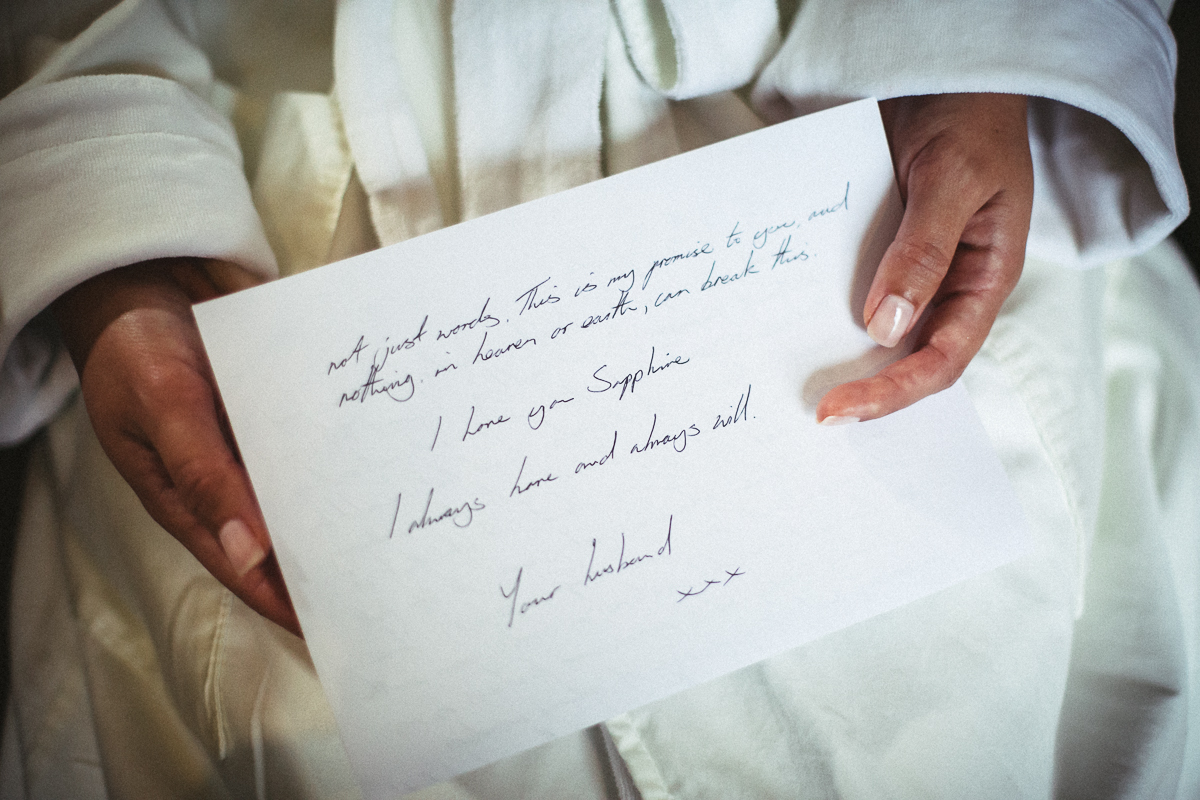 not just words. This is my promise to you, and
nothing. in heaven or earth, can break this.
I love you Sapphire
I always have and always will.
Your husband
xxx